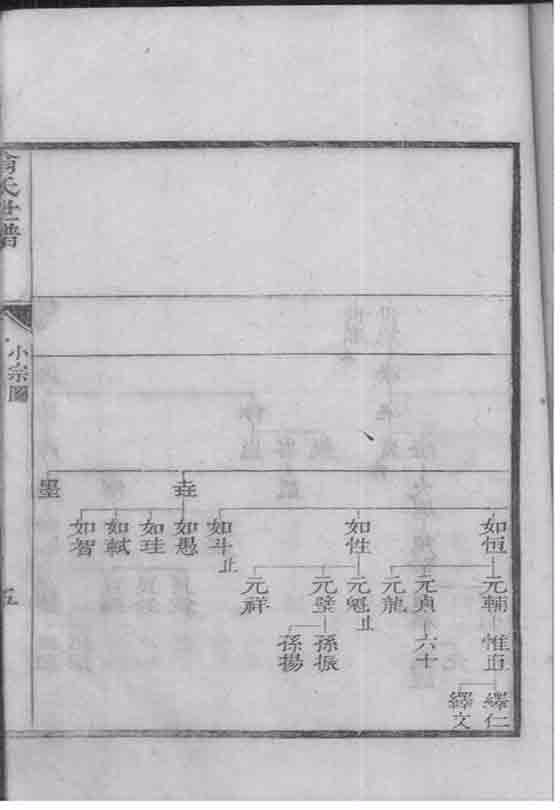 如恒
元輔
惟直
繹仁
繹文
元貞
六十
元龍
如性
元魁止
元璧
孫振
孫揚
元祥
如斗止
垚
如愚
如珪
如軾
如智
墨
氏世譜
小宗圖
五